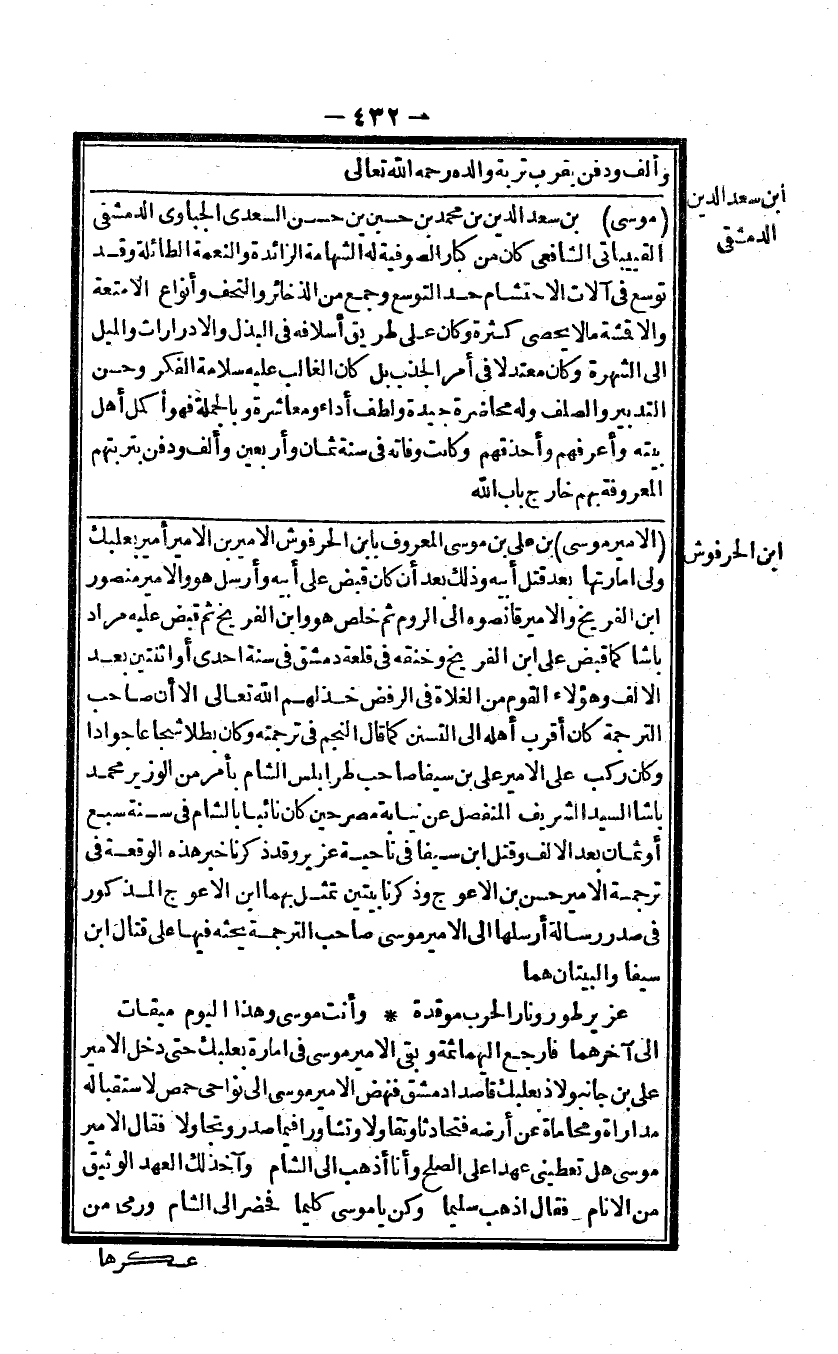 — ٤٣٢ —
وألف ودفن بقرب تربة والده رحمه الله تعالى
ابن سعد الدين
الدمشقى
(موسى) بن سعد الدين بن محمد بن حسين بن حسن السعدى الجباوى الدمشقى
القبيباتى الشافعى كان من كبار الصوفية له الشهامة الزائدة والنعمة الطائلة وقد
توسع فى آلات الاحتشام حد التوسع وجمع من الذخائر والتحف وأنواع الامتعة
والاقشة مالا يحصى كثرة وكان على طريق أسلافه فى البذل والادرارات والميل
الى الشهرة وكان معتدلا فى أمر الجذب بل كان الغالب عليه سلامة الفكر وحسن
التدبير والصلف وله محاضرة جيدة ولطف أداء ومعاشرة وبالجملة فهو أكمل أهل
بيته وأعرفهم وأحذقهم وكانت وفاته فى سنة ثمان وأربعين وألف ودفن بتربتهم
المعروفة بهم خارج باب الله
ابن الحرفوش
(الامير موسى) بن على بن موسى المعروف بابن الحرفوش الامير بن الامير أمير بعلبك
ولى امارتها بعد قتل أبيه وذلك بعد أن كان قبض على أبيه وأرسل هو والامير منصور
ابن الفريخ والامير قانصوه الى الروم ثم خلص هو وابن الفريخ ثم قبض عليه مراد
باشا كما قبض على ابن الفريخ وخنقه فى قلعة دمشق فى سنة احدى أو اثنتين بعد
الالف وهؤلاء القوم من الغلاة فى الرفض خذلهم الله تعالى الا أن صاحب
الترجمة كان أقرب أهله الى التسنن كما قال النجم فى ترجمته وكان بطلا شجاعا جوادا
وكان ركب على الامير على بن سيفا صاحب طرابلس الشام بأمر من الوزير محمد
باشا السيد الشريف المنفصل عن نيابة مصر حين كان نائبا بالشام فى سنة سبع
أو ثمان بعد الالف وقتل ابن سيفا فى ناحية عزير وقد ذكرنا خبر هذه الوقعة فى
ترجمة الامير حسن بن الاعوج وذكرنا بيتين تمثل بهما ابن الاعوج المذكور
فى صدر رسالة أرسلها الى الامير موسى صاحب الترجمة يحثه فيها على قتال ابن
سيفا والبيتان هما
عزير طور ونار الحرب موقدة * وأنت موسى وهذا اليوم ميقات
الى آخرهما فارجع اليهما ثمة وبقى الامير موسى فى امارة بعلبك حتى دخل الامير
على بن جانبولاذ بعلبك قاصدا دمشق فنهض الامير موسى الى نواحى حمص لاستقباله
مداراة ومحاماة عن أرضه فتحادثا وتقاولا وتشاورا فيما صدر وتجاولا فقال الامير
موسى هل تعطينى عهدا على الصلح وأنا أذهب الى الشام وآخذ لك العهد الوثيق
من الانام فقال اذهب سليما وكن ياموسى كليما فحضر الى الشام ورمى من
عسكرها